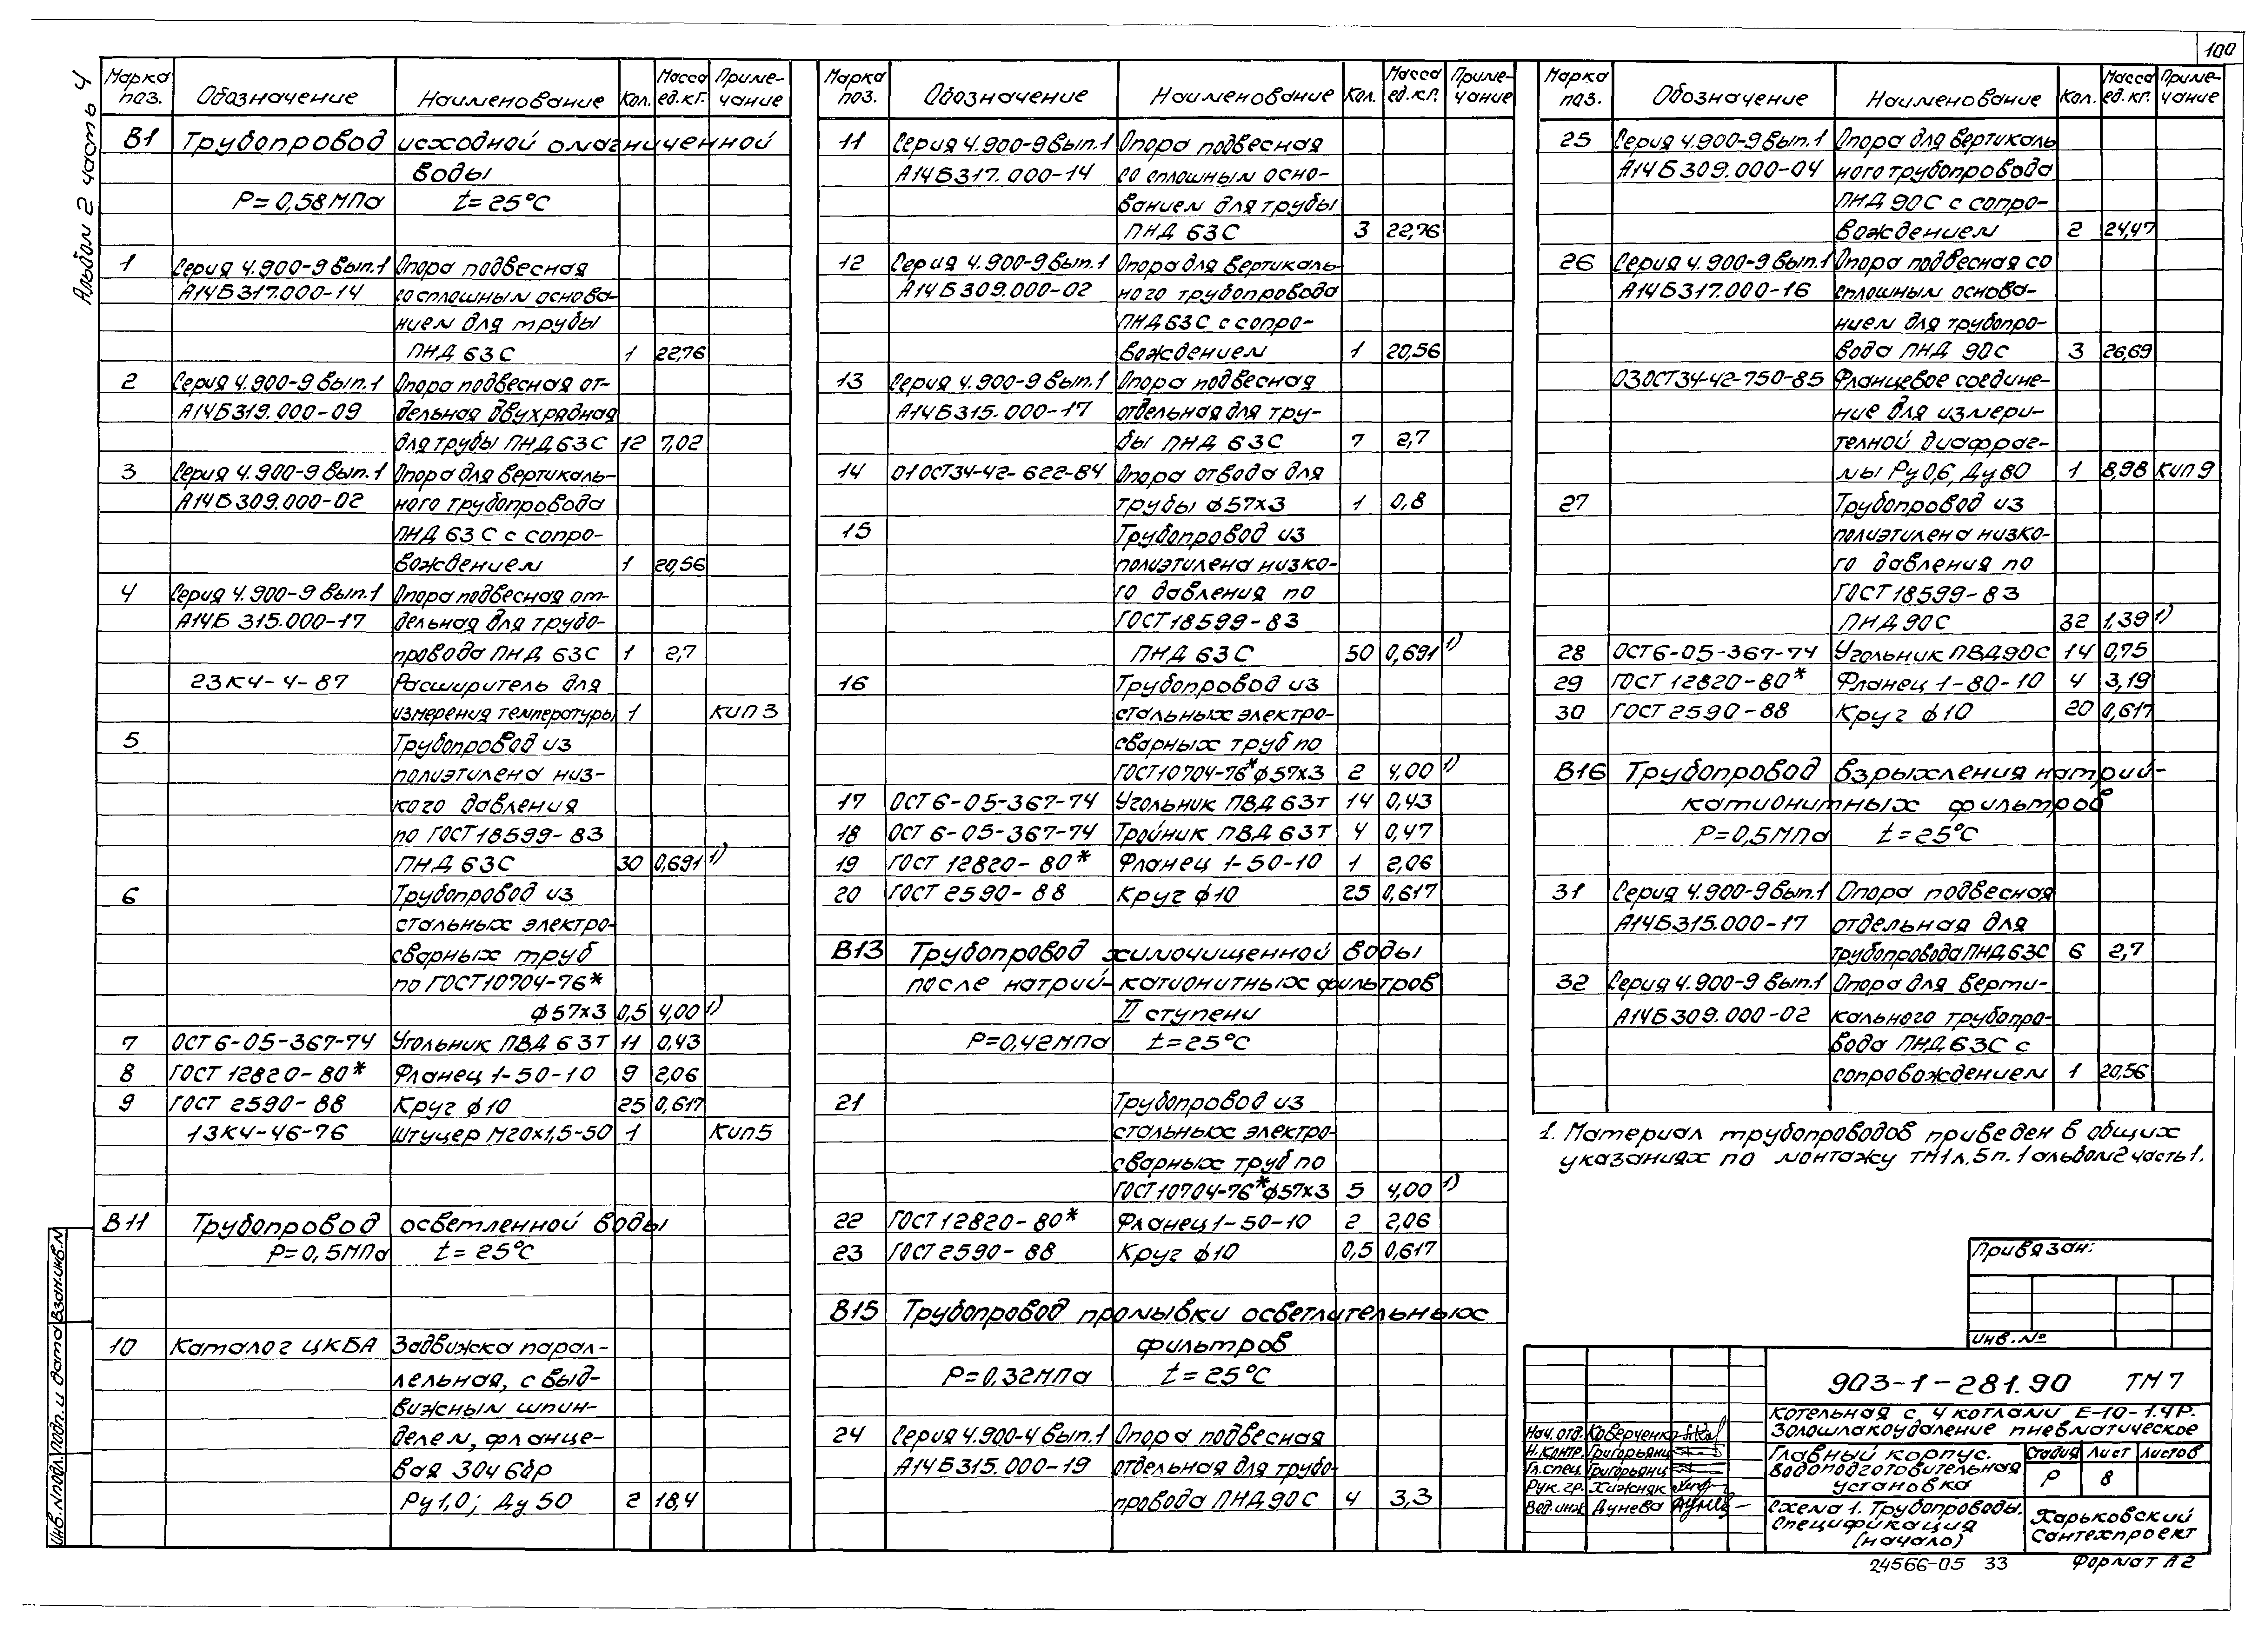 100
Альбом 2 часть 4
Марка поз. Обозначение Наименование Кол. Масса ед.кг. Приме-чание
В1 Трубопровод исходной омагниченной
воды
Р=0,58МПа t=25°С
1 Серия 4.900-9 вып.1 Опора подвесная
А14Б317.000-14 со сплошным основа-
нием для трубы
ПНД 63С 1 22,76
2 Серия 4.900-9 вып.1 Опора подвесная от-
А14Б319.000-09 дельная двухрядная
для трубы ПНД 63С 12 7,02
3 Серия 4.900-9 вып.1 Опора для вертикаль-
А14Б309.000-02 ного трубопровода
ПНД 63С с сопро-
вождением 1 20,56
4 Серия 4.900-9 вып.1 Опора подвесная от-
А14Б 315.000-17 дельная для трубо-
провода ПНД 63С 1 2,7
23К4-4-87 Расширитель для
измерения температуры 1 КИП 3
5 Трубопровод из
полиэтилена низ-
кого давления
по ГОСТ 18599-83
ПНД 63С 30 0,691 1)
6 Трубопровод из
стальных электро-
сварных труб
по ГОСТ10704-76*
ф57х3 0,5 4,00 1)
7 ОСТ 6-05-367-74 Угольник ПВД 63Т 11 0,43
8 ГОСТ 12820-80* Фланец 1-50-10 9 2,06
9 ГОСТ 2590-88 Круг ф10 25 0,617
13К4-46-76 Штуцер М20х1,5-50 1 КИП5
В11 Трубопровод осветленной воды
Р=0,5МПа t=25°С
10 Каталог ЦКБА Задвижка парал-
лельная, с выд-
вижным шпин-
делем, фланце-
вая 30ч6бр
Ру1,0; Ду50 2 18,4
Марка поз. Обозначение Наименование Кол. Масса ед.кг. Приме-чание
11 Серия 4.900-9вып.1 Опора подвесная
А14Б317.000-14 со сплошным осно-
ванием для трубы
ПНД 63С 3 22,76
12 Серия 4.900-9 вып.1 Опора для вертикаль-
А14Б309.000-02 ного трубопровода
ПНД63С с сопро-
вождением 1 20,56
13 Серия 4.900-9 вып.1 Опора подвесная
А14Б315.000-17 отдельная для тру-
бы ПНД 63С 7 2,7
14 01ОСТ34-42-622-84 Опора отвода для
трубы ф57х3 1 0,8
15 Трубопровод из
полиэтилена низко-
го давления по
ГОСТ18599-83
ПНД 63С 50 0,691 1)
16 Трубопровод из
стальных электро-
сварных труб по
ГОСТ10704-76*ф57х3 2 4,00 1)
17 ОСТ 6-05-367-74 Угольник ПВД 63Т 14 0,43
18 ОСТ 6-05-367-74 Тройник ПВД 63Т 4 0,47
19 ГОСТ 12820-80* Фланец 1-50-10 1 2,06
20 ГОСТ 2590-88 Круг ф10 25 0,617
В13 Трубопровод химочищенной воды
после натрий-катионитных фильтров
II ступени
Р=0,42МПа t=25°С
21 Трубопровод из
стальных электро-
сварных труб по
ГОСТ10704-76*ф57х3 5 4,00 1)
22 ГОСТ12820-80* Фланец1-50-10 2 2,06
23 ГОСТ2590-88 Круг ф10 0,5 0,617
В15 Трубопровод промывки осветлительных
фильтров
Р=0,32МПа t=25°С
24 Серия 4.900-4 вып.1 Опора подвесная
А14Б315.000-19 отдельная для трубо-
провода ПНД90С 4 3,3
Марка поз. Обозначение Наименование Кол. Масса ед.кг. Приме-чание
25 Серия 4.900-9вып.1 Опора для вертикаль
А14Б309.000-04 ного трубопровода
ПНД 90С с сопро-
вождением 2 24,47
26 Серия 4.900-9вып.1 Опора подвесная со
А14Б317.000-16 сплошным основа-
нием для трубопро-
вода ПНД 90С 3 26,69
03ОСТ34-42-750-85 Фланцевое соедине-
ние для измери-
телной диафраг-
мы Ру0,6, Ду80 1 8,98 КИП9
27 Трубопровод из
полиэтилена низко-
го давления по
ГОСТ18599-83
ПНД90С 32 1,39 1)
28 ОСТ6-05-367-74 Угольник ПВД90С 14 0,75
29 ГОСТ 12820-80* Фланец 1-80-10 4 3,19
30 ГОСТ 2590-88 Круг ф10 20 0,617
В16 Трубопровод взрыхления натрий-
катионитных фильтров
Р=0,5МПа t=25°С
31 Серия 4.900-9вып.1 Опора подвесная
А14Б315.000-17 отдельная для
трубопровода ПНД63С 6 2,7
32 Серия 4.900-9 вып.1 Опора для верти-
А14Б309.000-02 кального трубопро-
вода ПНД63С с
сопровождением 1 20,56
1. Материал трубопроводов приведен в общих
указаниях по монтажу ТМ1л.5п.1альбом2часть1.
Привязан:
Инв.№
903-1-281.90 ТМ7
Котельная с 4 котлами Е-10-1.4Р.
Золошлакоудаление пневматическое
Нач.отд. Коверченко
Н.контр. Григорьянц
Гл.спец. Григорьянц
Рук.гр. Хижняк
Вед.инж Дунева
Главный корпус.
Водоподготовительная
установка
Стадия Лист Листов
Р 8
Схема 1. Трубопроводы.
Спецификация
(начало)
Харьковский
Сантехпроект
24566-05 33 Формат А2
Инв.№подл. Подп. и дата Взам.инв.№